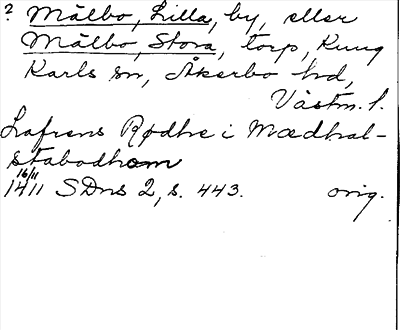 ? Målbo, Lilla, by, eller
Målbo, Stora, torp, Kung
Karls sn, Åkerbo hd,
Västm. l.
Lafrens Rødhe i Mædhal-
stabodhom
16/11
1411 SDns 2, s. 443. orig.